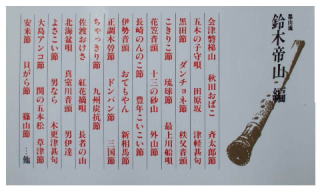 都山流
鈴木帝山・編
会津磐梯山　秋田おばこ　斉太郎節
五木の子守唄　田原坂　津軽甚句
黒田節　ダンチョネ節　秩父音頭
こきりこ節　琉球節　最上川船唄
花笠音頭　十三の砂山　外山節
長崎のんのこ節　豊年こいこい節
伊勢音頭　おてもやん　新相馬節
正調木曽節　ドンパン節　三国節
ちゃっきり節　九州炭坑節
佐渡おけさ　紅花摘唄　長者の山
北海盆唄　真室川音頭　男伊達
よさこい節　男なら　木更津甚句
大島アンコ節　関の五本松　草津節
安来節　貝がら節　篠山節　…他